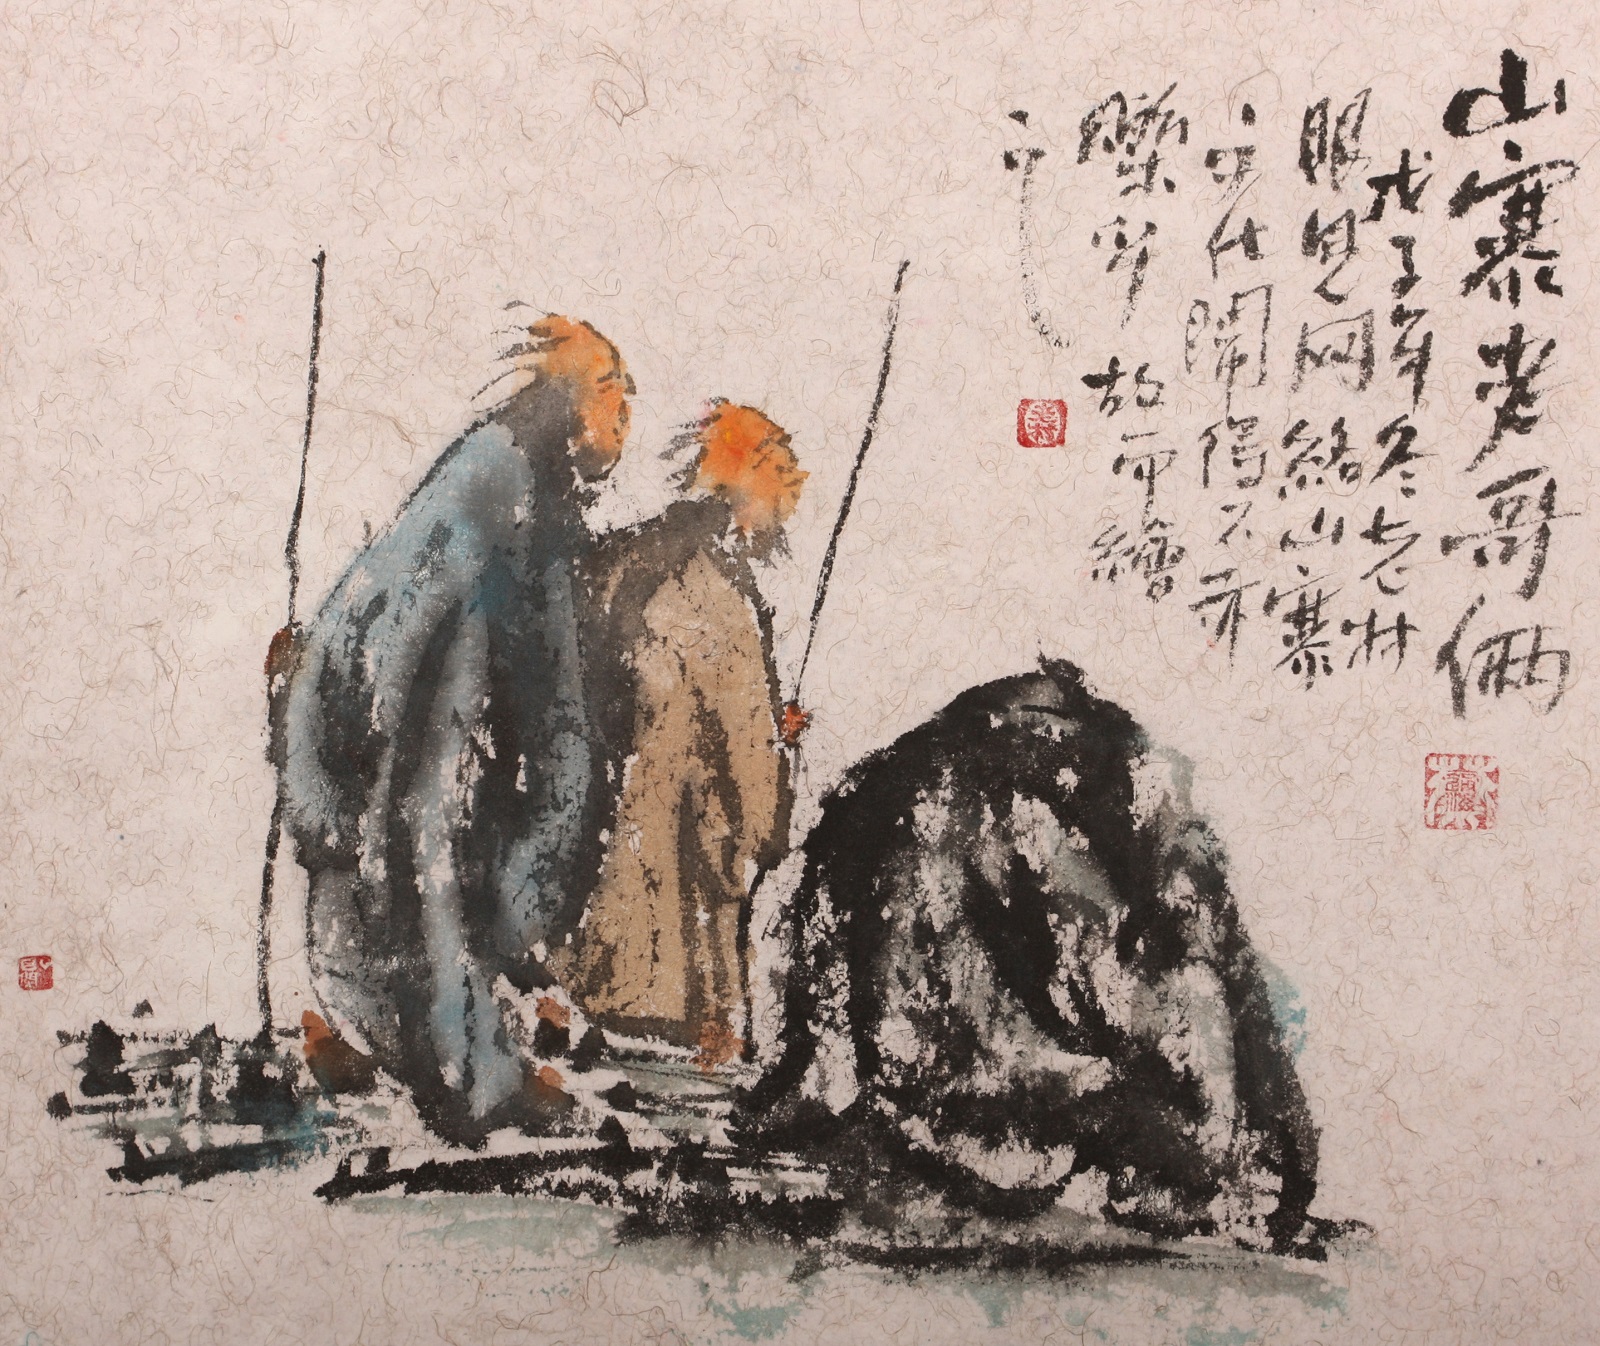 山寨老哥俩
戊子年冬老林
眼見网絡山寨
文化閙得不亦
樂乎 故而繪
之